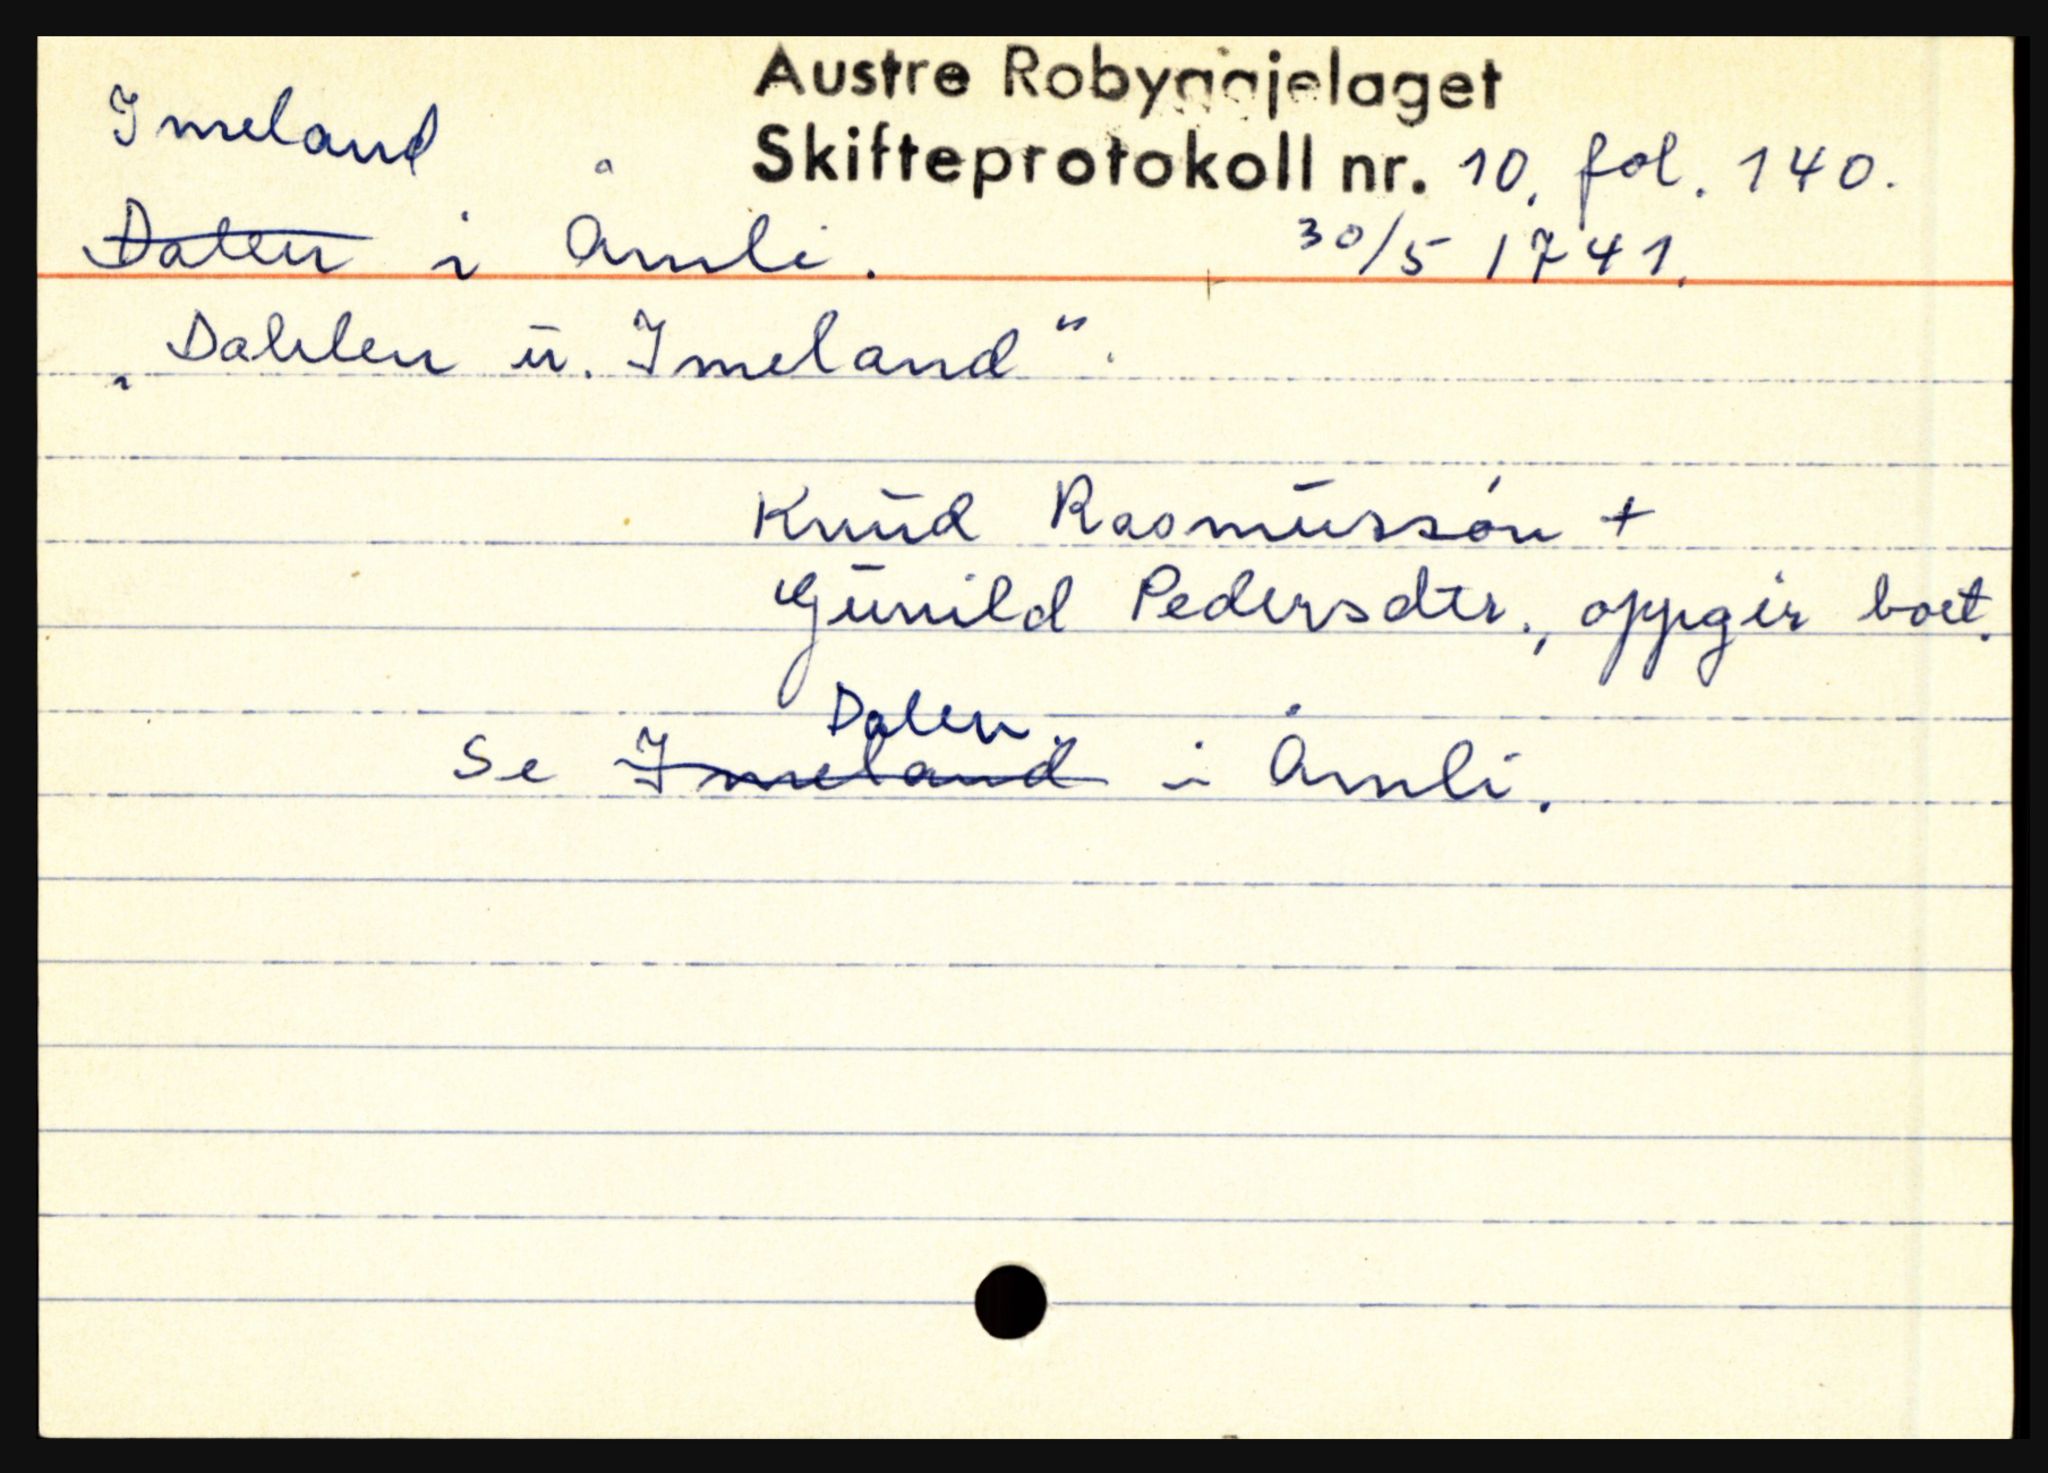 Austre Robyggjelaget
Imeland
Skifteprotokoll nr. 10. fol. 140.
Dalen i Åmli. 30/5 1741.
"Dahlen ū. Imeland".
Knūd Rasmūssøn +
Gūnild Pedersdtr., oppgir boet.
Dalen.
Se Imeland i Åmli.